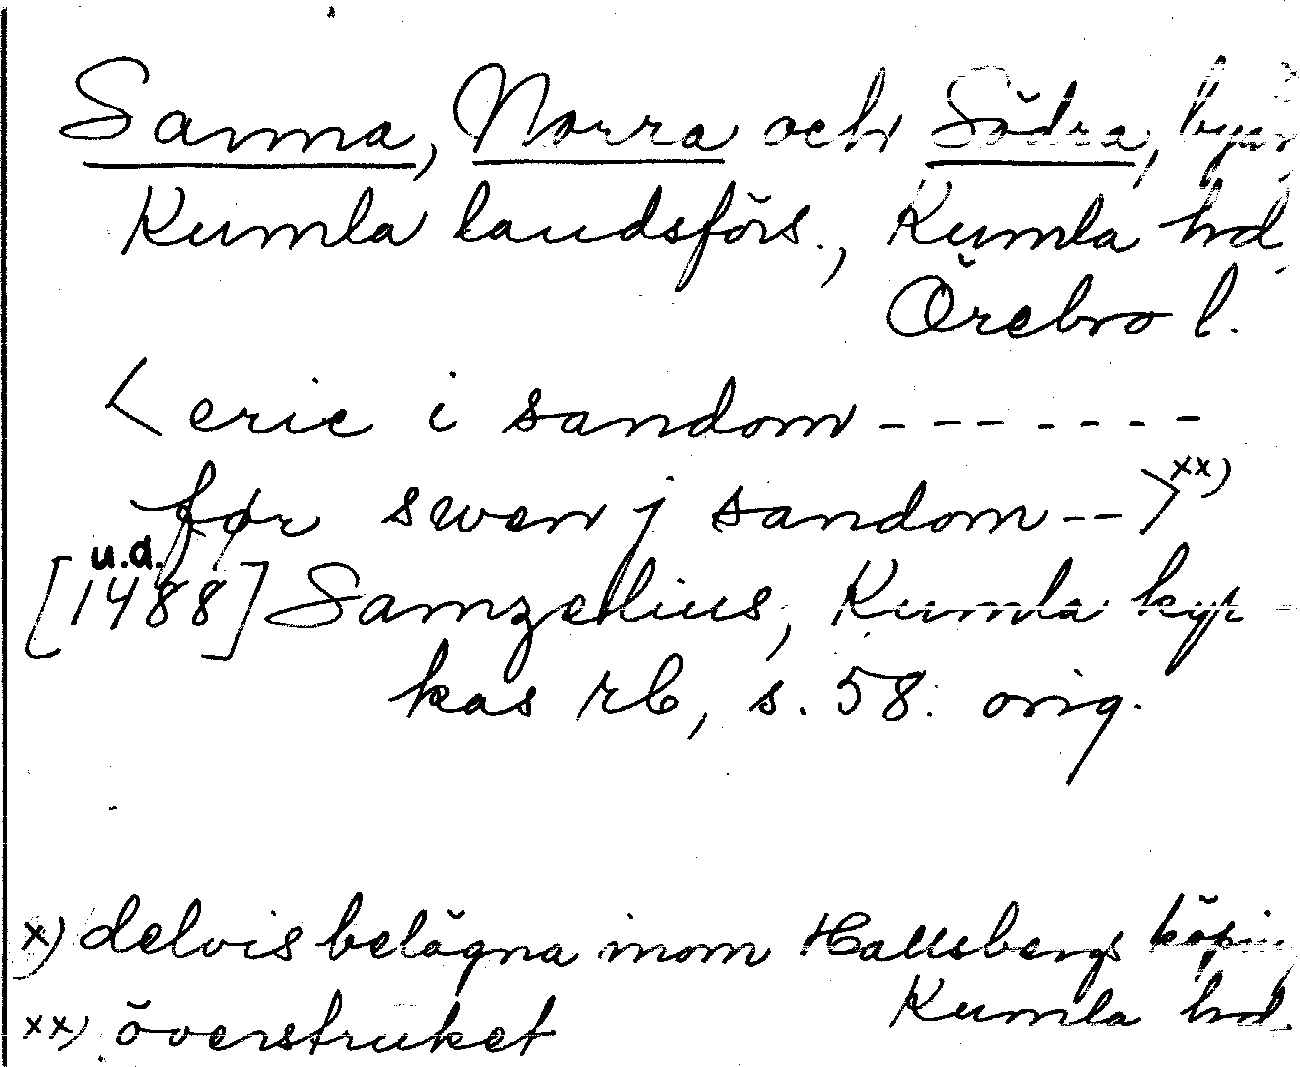 Sanna, Norra och Södra, byar
Kumla landsförs., Kumla hd,
Örebro l.
< eric i sandom - - - - - - -
før swen j sandom - - > xx)
u.a.
[1488] Samzelius, Kumla kyr-
kas rb, s. 58. orig.
x) delvis belägna inom Hallsbergs köping
Kumla hd.
xx) överstruket